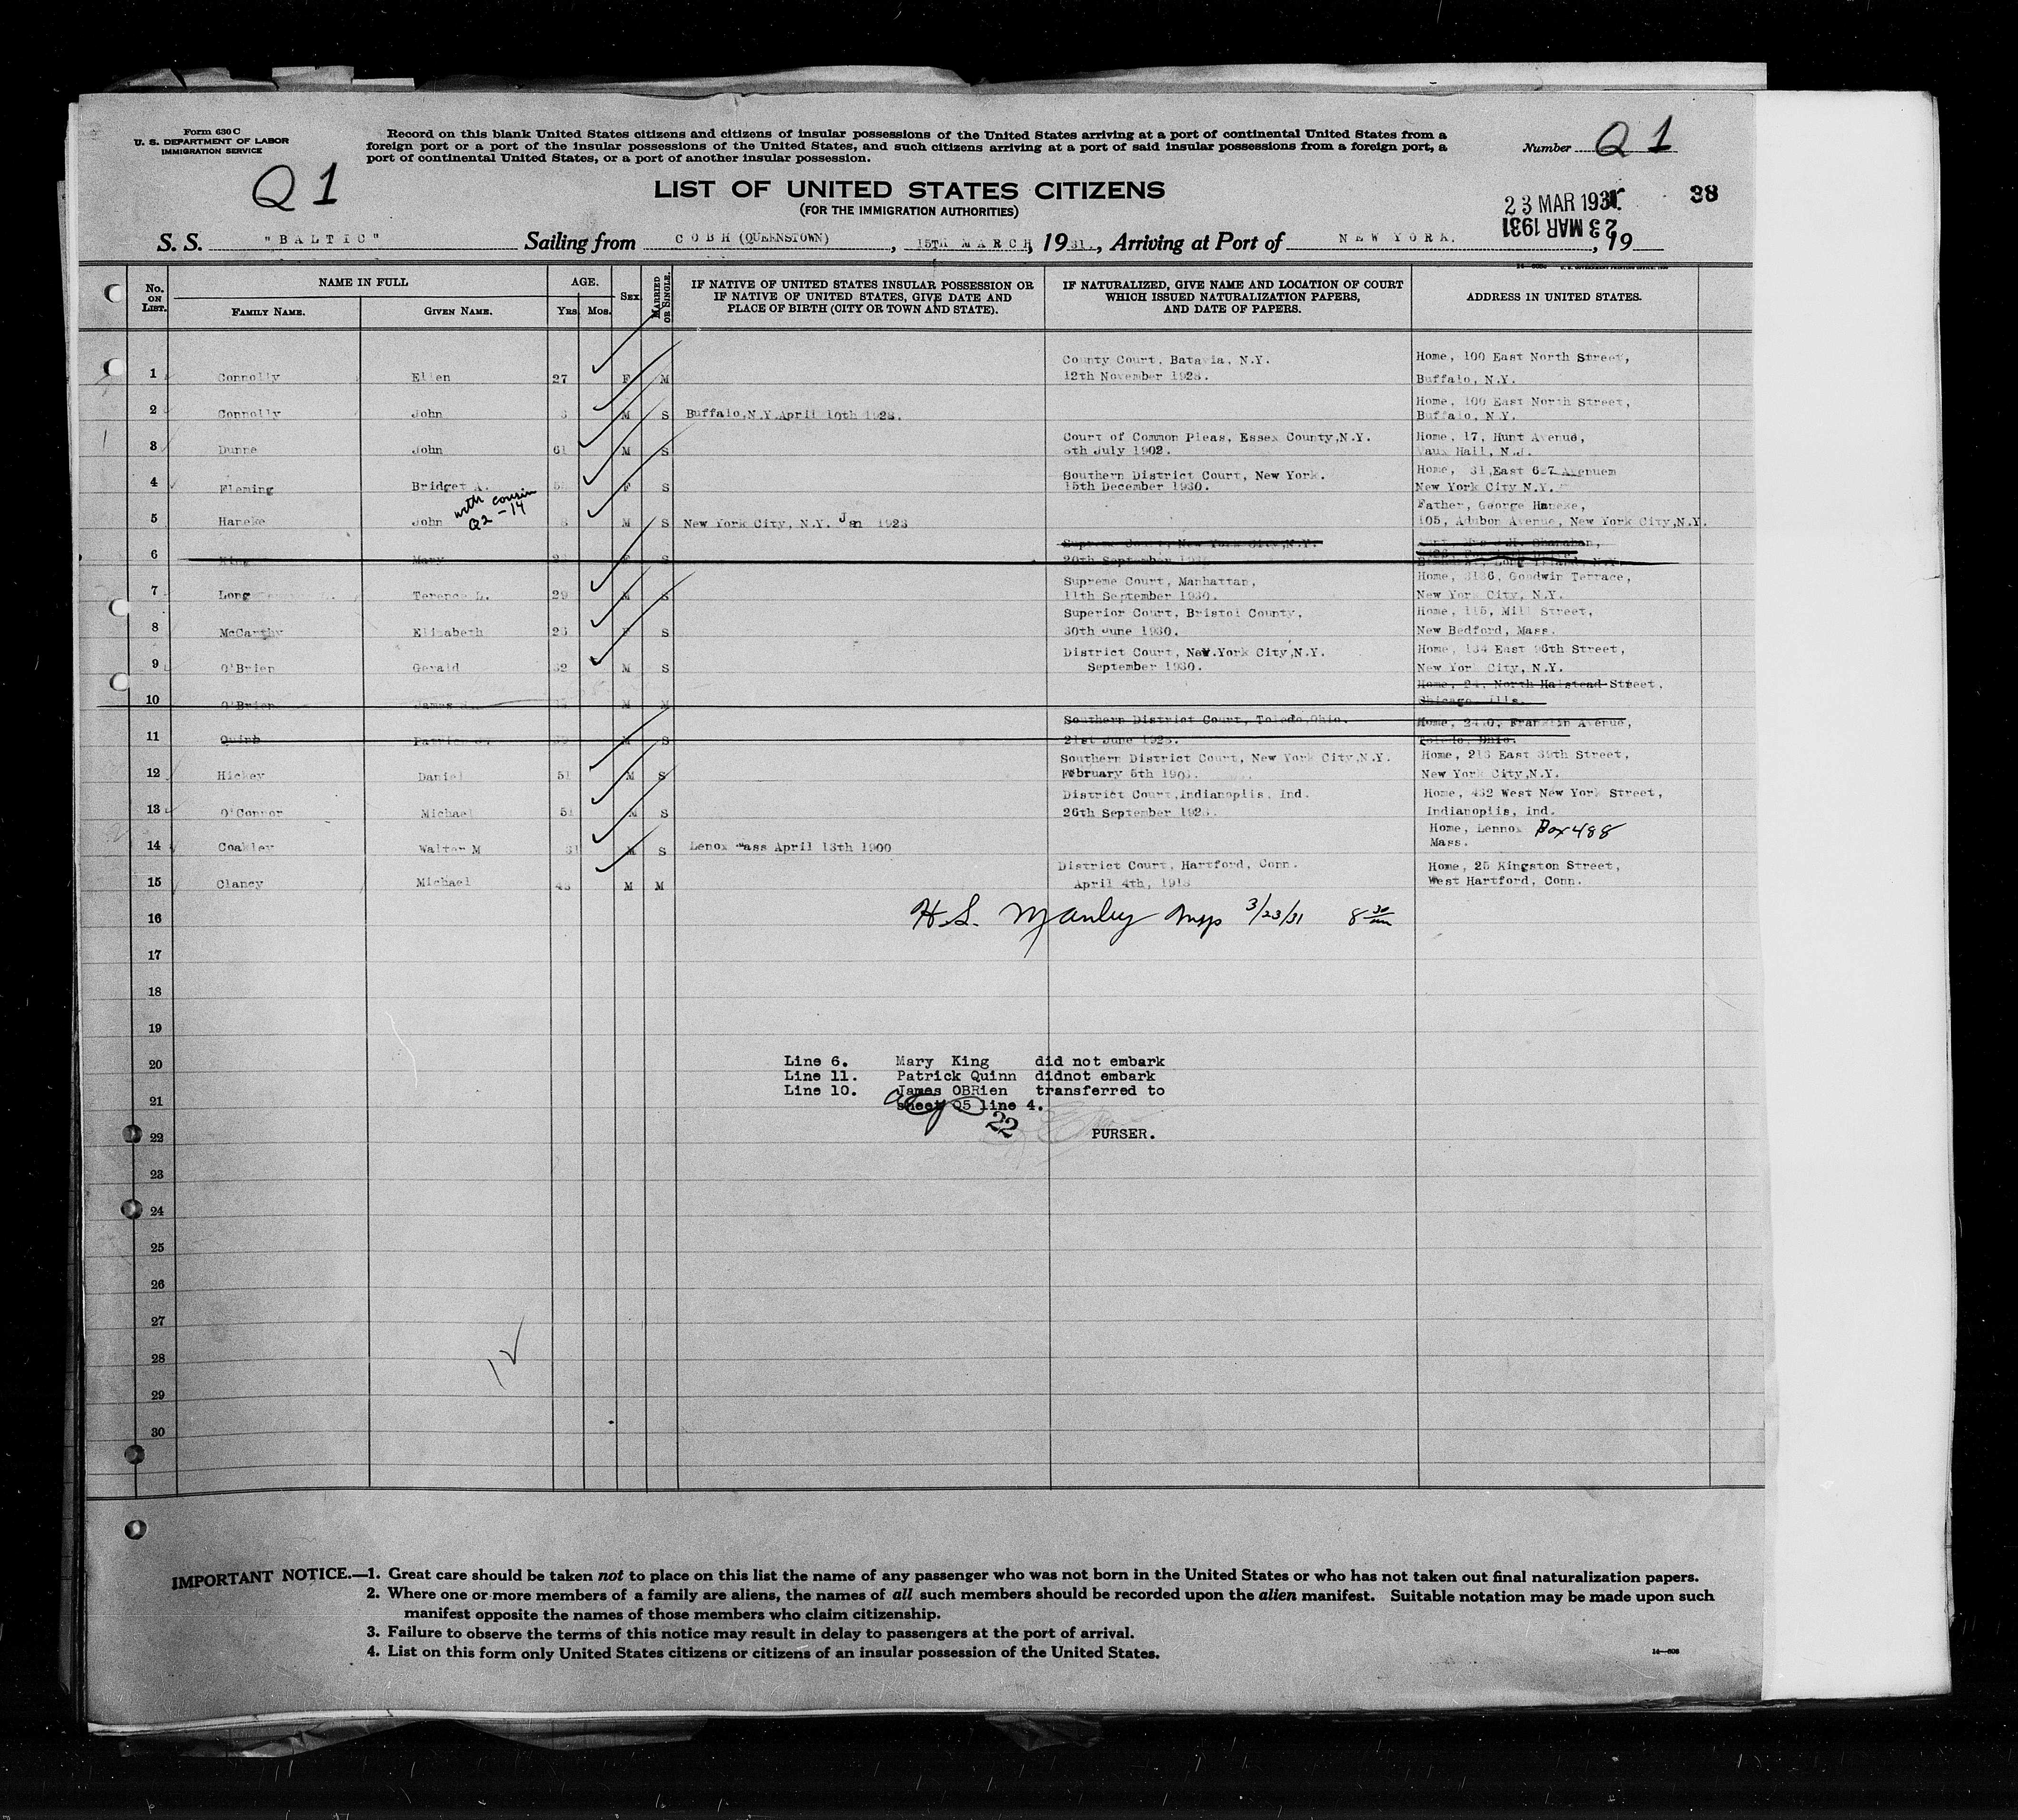 Form 630 C
U. S. DEPARTMENT OF LABOR
IMMIGRATION SERVICE
Record on this blank United States citizens and citizens of insular possessions of the United States arriving at a port of continental United States from a
foreign port or a port of the insular possessions of the United States, and such citizens arriving at a port of said insular possessions from a foreign port, a
port of continental United States, or a port of another insular possession.
Number Q 1
Q 1
LIST OF UNITED STATES CITIZENS
(FOR THE IMMIGRATION AUTHORITIES)
23 MAR 1931
38
23 MAR 1931
S. S. "BALTIC" Sailing from COBH (QUEENSTOWN), 15TH MARCH, 1931., Arriving at Port of NEW YORK., 19
No. ON LIST. NAME IN FULL AGE. SEX MARRIED OR SINGLE. IF NATIVE OF UNITED STATES INSULAR POSSESSION OR IF NATIVE OF UNITED STATES, GIVE DATE AND PLACE OF BIRTH (CITY OR TOWN AND STATE). IF NATURALIZED, GIVE NAME AND LOCATION OF COURT WHICH ISSUED NATURALIZATION PAPERS, AND DATE OF PAPERS. ADDRESS IN UNITED STATES.
FAMILY NAME. GIVEN NAME. YRS. MOS.
County Court, Batavia, N.Y. Home, 100 East North Street,
1 Connolly Ellen 27 F M 12th November 1928. Buffalo, N.Y.
Home, 100 East North Street,
2 Connolly John M S Buffalo,N.Y.April 10th 1928. Buffalo, N.Y.
Court of Common Pleas, Essex County,N.Y. Home, 17, Hunt Avenue,
3 Dunne John 61 M S July 1902. Vaux Hall, N.J.
Southern District Court, New York. Home, 31,East Avenuem
4 Fleming Bridget A. F S 15th December 1930. New York City N.Y.
with cousin
Q2-14
Father, George Haneke,
5 Haneke John M S New York City, N.Y. Jan 1923 105, Adubon Avenue, New York City,N.Y.
Supreme Court, New York City,N.Y. Shanahan,
6 King Mary F S 20th September Long Island, N.Y.
Supreme Court, Manhattan, Home, 3136, Goodwin Terrace,
7 Long Terence L. 29 M S 11th September 1930. New York City, N.Y.
Superior Court, Bristol County, Home, 115, Mill Street,
8 McCarthy Elizabeth F S 30th June 1930. New Bedford, Mass.
District Court, New.York City,N.Y. Home, 134 East 96th Street,
9 O'Brien Gerald 32 M S September 1930. New York City, N.Y.
Home, 24, North Halstead Street,
10 O'Brien James M M Chicago, Ills.
Southern District Court, Toledo,Ohio. Home, Franklin Avenue,
11 Quinn Patrick M S 21st June Toledo, Ohio.
Southern District Court, New York City,N.Y. Home, 213 East 39th Street,
12 Hickey Daniel 51 M S February 5th New York City,N.Y.
District Court,Indianoplis, Ind. Home, 432 West New York Street,
13 O'Connor Michael 51 M S 26th September Indianoplis, Ind.
Home, Lennox Box 488
14 Coakley Walter M 31 M S Lenox Mass April 13th 1900 Mass.
District Court, Hartford, Conn. Home, 25 Kingston Street,
15 Clancy Michael M M April 4th, West Hartford, Conn.
16 H.S. Manley Insp 3/23/31 8 30 am
17
18
19
20 Line 6. Mary King did not embark
Line 11. Patrick Quinn didnot embark
Line 10. James OBRien transferred to
21 sheet Q5 line 4.
22
22 PURSER.
23
24
25
26
27
28
12
29
30
IMPORTANT NOTICE.—1. Great care should be taken not to place on this list the name of any passenger who was not born in the United States or who has not taken out final naturalization papers.
2. Where one or more members of a family are aliens, the names of all such members should be recorded upon the alien manifest. Suitable notation may be made upon such
manifest opposite the names of those members who claim citizenship.
3. Failure to observe the terms of this notice may result in delay to passengers at the port of arrival.
4. List on this form only United States citizens or citizens of an insular possession of the United States.